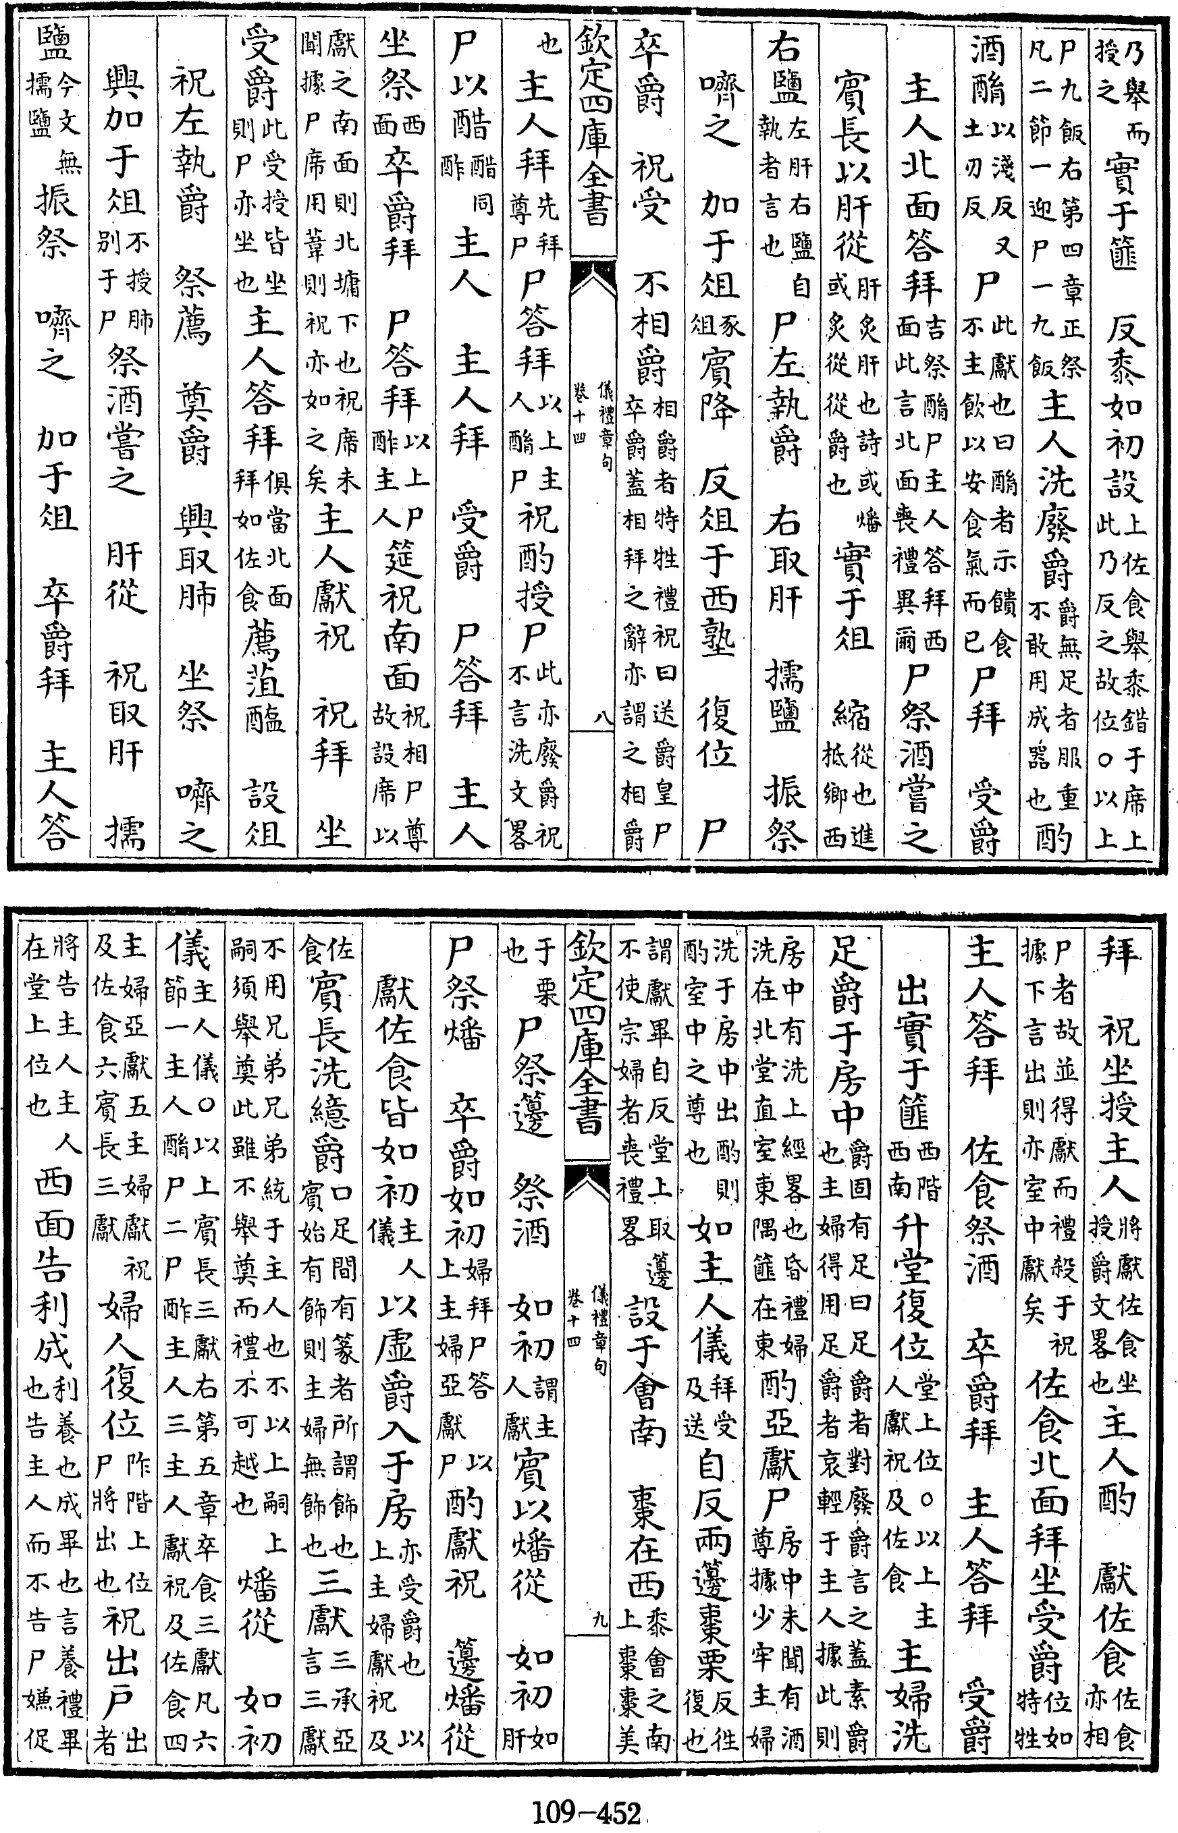 乃舉而授之實于篚 反黍如初設上佐食舉黍錯于席上此乃反之故位○以上
尸九飯右第四章正祭凡二節一迎尸一九飯主人洗廢爵爵無足者服重不敢用成器也酌
酒酳以淺反又土刃反尸此獻也曰酳者示饋食不主飲以安食氣而已尸拜 受爵
主人北面答拜吉祭酳尸主人答拜西面此言北面喪禮異爾尸祭酒嘗之
賓長以肝從肝炙肝也詩或燔或炙從從爵也實于俎 縮從也進柢鄉西
右鹽左肝右鹽自執者言也尸左執爵 右取肝 擩鹽 振祭
嚌之 加于俎豕俎賓降 反俎于西塾 復位 尸
卒爵 祝受 不相爵相爵者特牲禮祝曰送爵皇尸卒爵蓋相拜之辭亦謂之相爵
欽定四庫全書 儀禮章句 卷十四 八
也主人拜先拜尊尸尸答拜以上主人酳尸祝酌授尸此亦廢爵祝不言洗文畧
尸以醋醋同酢主人 主人拜 受爵 尸答拜 主人
坐祭西面卒爵拜 尸答拜以上尸酢主人筵祝南面祝相尸尊故設席以
獻之南面則北墉下也祝席未聞據尸席用葦則祝亦如之矣主人獻祝 祝拜 坐
受爵此受授皆坐則尸亦坐也主人答拜俱當北面拜如佐食薦菹醢 設俎
祝左執爵 祭薦 奠爵 興取肺 坐祭 嚌之
興加于俎不授肺别于尸祭酒嘗之 肝從 祝取肝 擩
鹽今文無擩鹽振祭 嚌之 加于俎 卒爵拜 主人答
拜 祝坐授主人將獻佐食坐授爵文畧也主人酌 獻佐食佐食亦相
尸者故並得獻而禮殺于祝據下言出則亦室中獻矣佐食北面拜坐受爵位如特牲
主人答拜 佐食祭酒 卒爵拜 主人答拜 受爵
出實于篚西階西南升堂復位堂上位○以上主人獻祝及佐食主婦洗
足爵于房中爵固有足曰足爵者對廢爵言之蓋素爵也主婦得用足爵者哀輕于主人據此則
房中有洗上經畧也昏禮婦洗在北堂直室東隅篚在東酌亞獻尸房中未聞有酒尊據少牢主婦
洗于房中出酌則酌室中之尊也如主人儀拜受及送自反兩籩棗栗反往復也
謂獻畢自反堂上取籩不使宗婦者喪禮畧設于會南 棗在西黍會之南上棗棗美
欽定四庫全書 儀禮章句 卷十四 九
于栗也尸祭籩 祭酒 如初謂主人獻賓以燔從 如初如肝
尸祭燔 卒爵如初婦拜尸答以上主婦亞獻尸酌獻祝 籩燔從
獻佐食皆如初主人儀以虛爵入于房亦受爵也以上主婦獻祝及
佐食賓長洗繶爵口足間有篆者所謂飾也賓始有飾則主婦無飾也三獻三承亞言三獻
不用兄弟兄弟統于主人也不以上嗣上嗣須舉奠此雖不舉奠而禮不可越也燔從 如初
儀主人儀○以上賓長三獻右第五章卒食三獻凡六節一主人酳尸二尸酢主人三主人獻祝及佐食四
主婦亞獻五主婦獻祝及佐食六賓長三獻婦人復位阼階上位尸將出也祝出戶出者
將告主人主人在堂上位也西面告利成利養也成畢也言養禮畢也告主人而不告尸嫌促
109-452